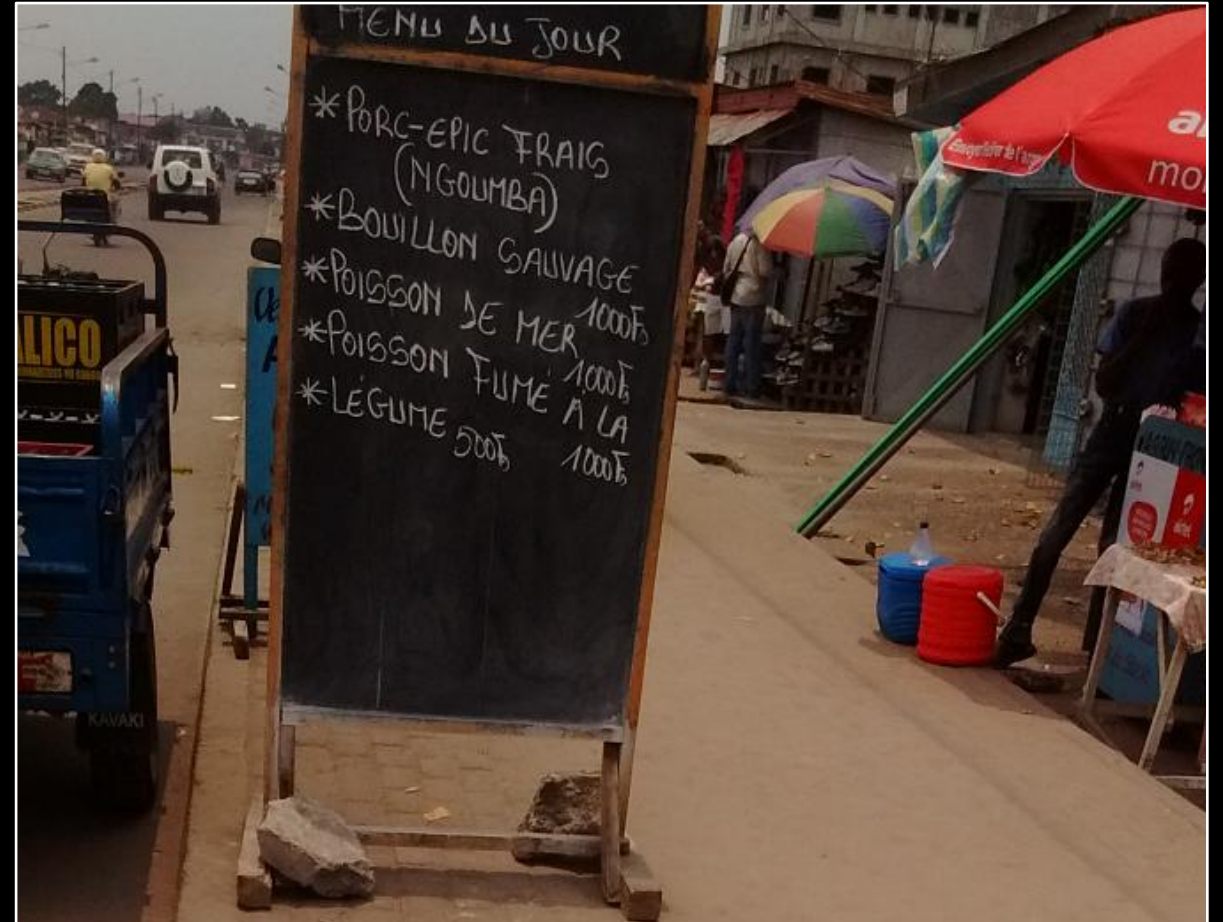 MENU DU JOUR
* PORC-EPIC FRAIS
(NGOUMBA)
* BOUILLON SAUVAGE
1000Fs
* POISSON DE MER
1000Fs
* POISSON FUMÉ À LA
1000Fs
* LÉGUME 500Fs
LICO
KAVAKI
airtel